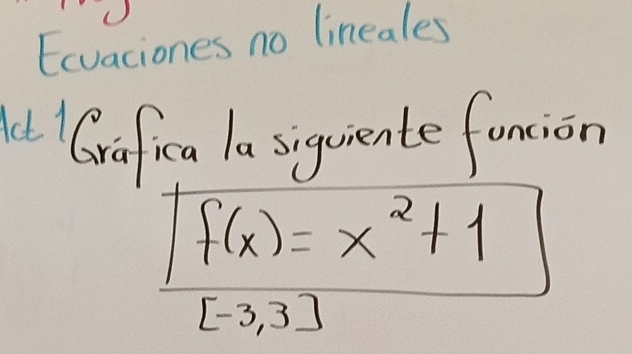 Ecuaciones no lineales
Act 1 Gráfica la siguiente función
f(x) = x² + 1
[-3,3]